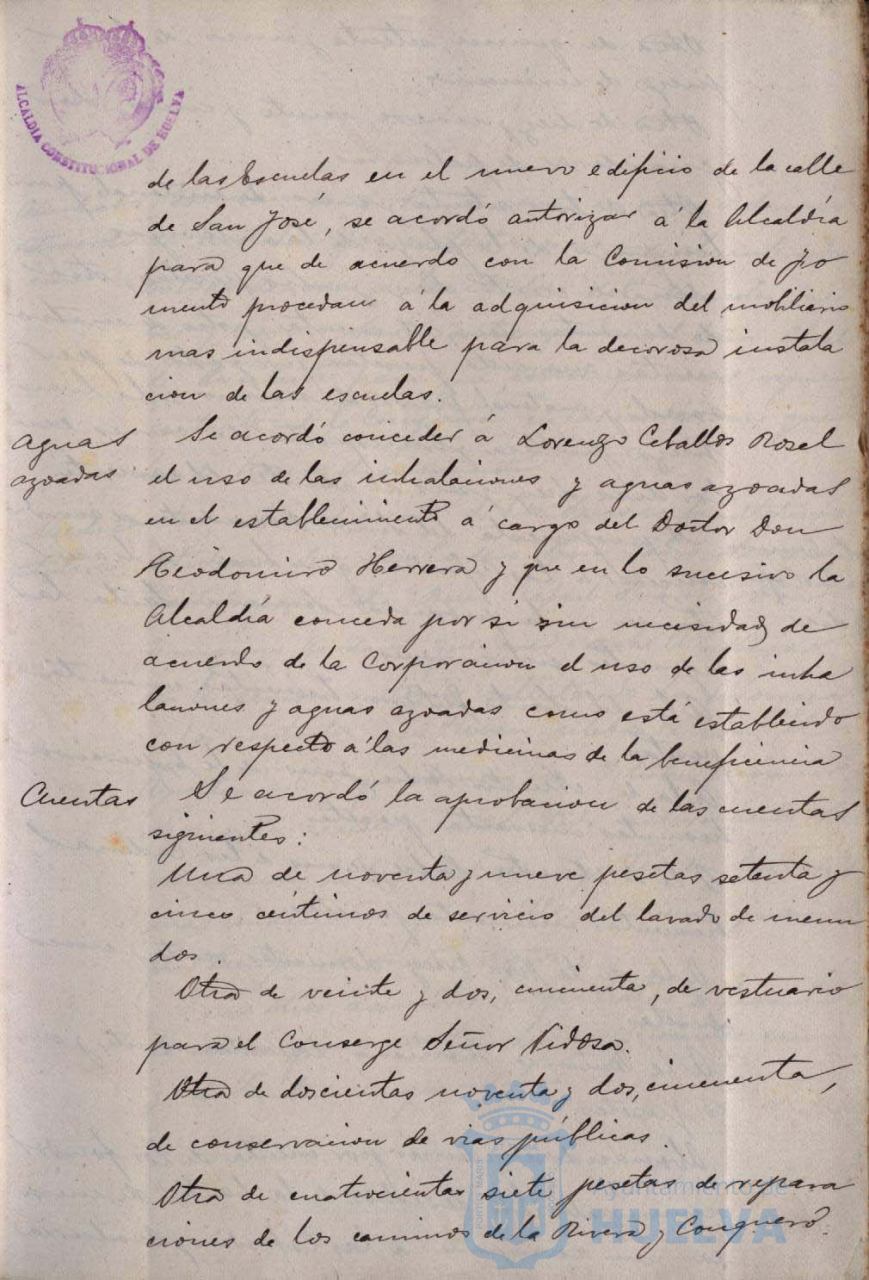 ALCALDIA CONSTITUCIONAL DE HUELVA
de las Escuelas en el nuevo edificio de la calle
de San José, se acordó autorizar á la Alcaldía
para que de acuerdo con la Comision de Fo
mento procedan á la adquisicion del mobiliario
mas indispensable para la decorosa instala
cion de las escuelas.
Aguas
azoadas
Se acordó conceder á Lorenzo Ceballos Rosel
el uso de las inhalaciones y aguas azoadas
en el establecimiento á cargo del Doctor Don
Teodomiro Herrera y que en lo sucesivo la
Alcaldía conceda por si sin necisidad de
acuerdo de la Corporacion el uso de las inha
laciones y aguas azoadas como está establecido
con respecto á las medicinas de la beneficencia
Cuentas
Se acordó la aprobacion de las cuentas
siguientes:
Una de noventa y nueve pesetas setenta y
cinco céntimos de servicio del lavado de menu
dos.
Otra de veinte y dos, cincuenta, de vestuario
para el Conserge Señor Vidosa.
Otra de doscientas noventa y dos, cincuenta,
de conservacion de vias públicas.
Otra de cuatrocientas siete pesetas de repara
ciones de los caminos de la Rivera y Conquero.
Ayuntamiento de
HUELVA